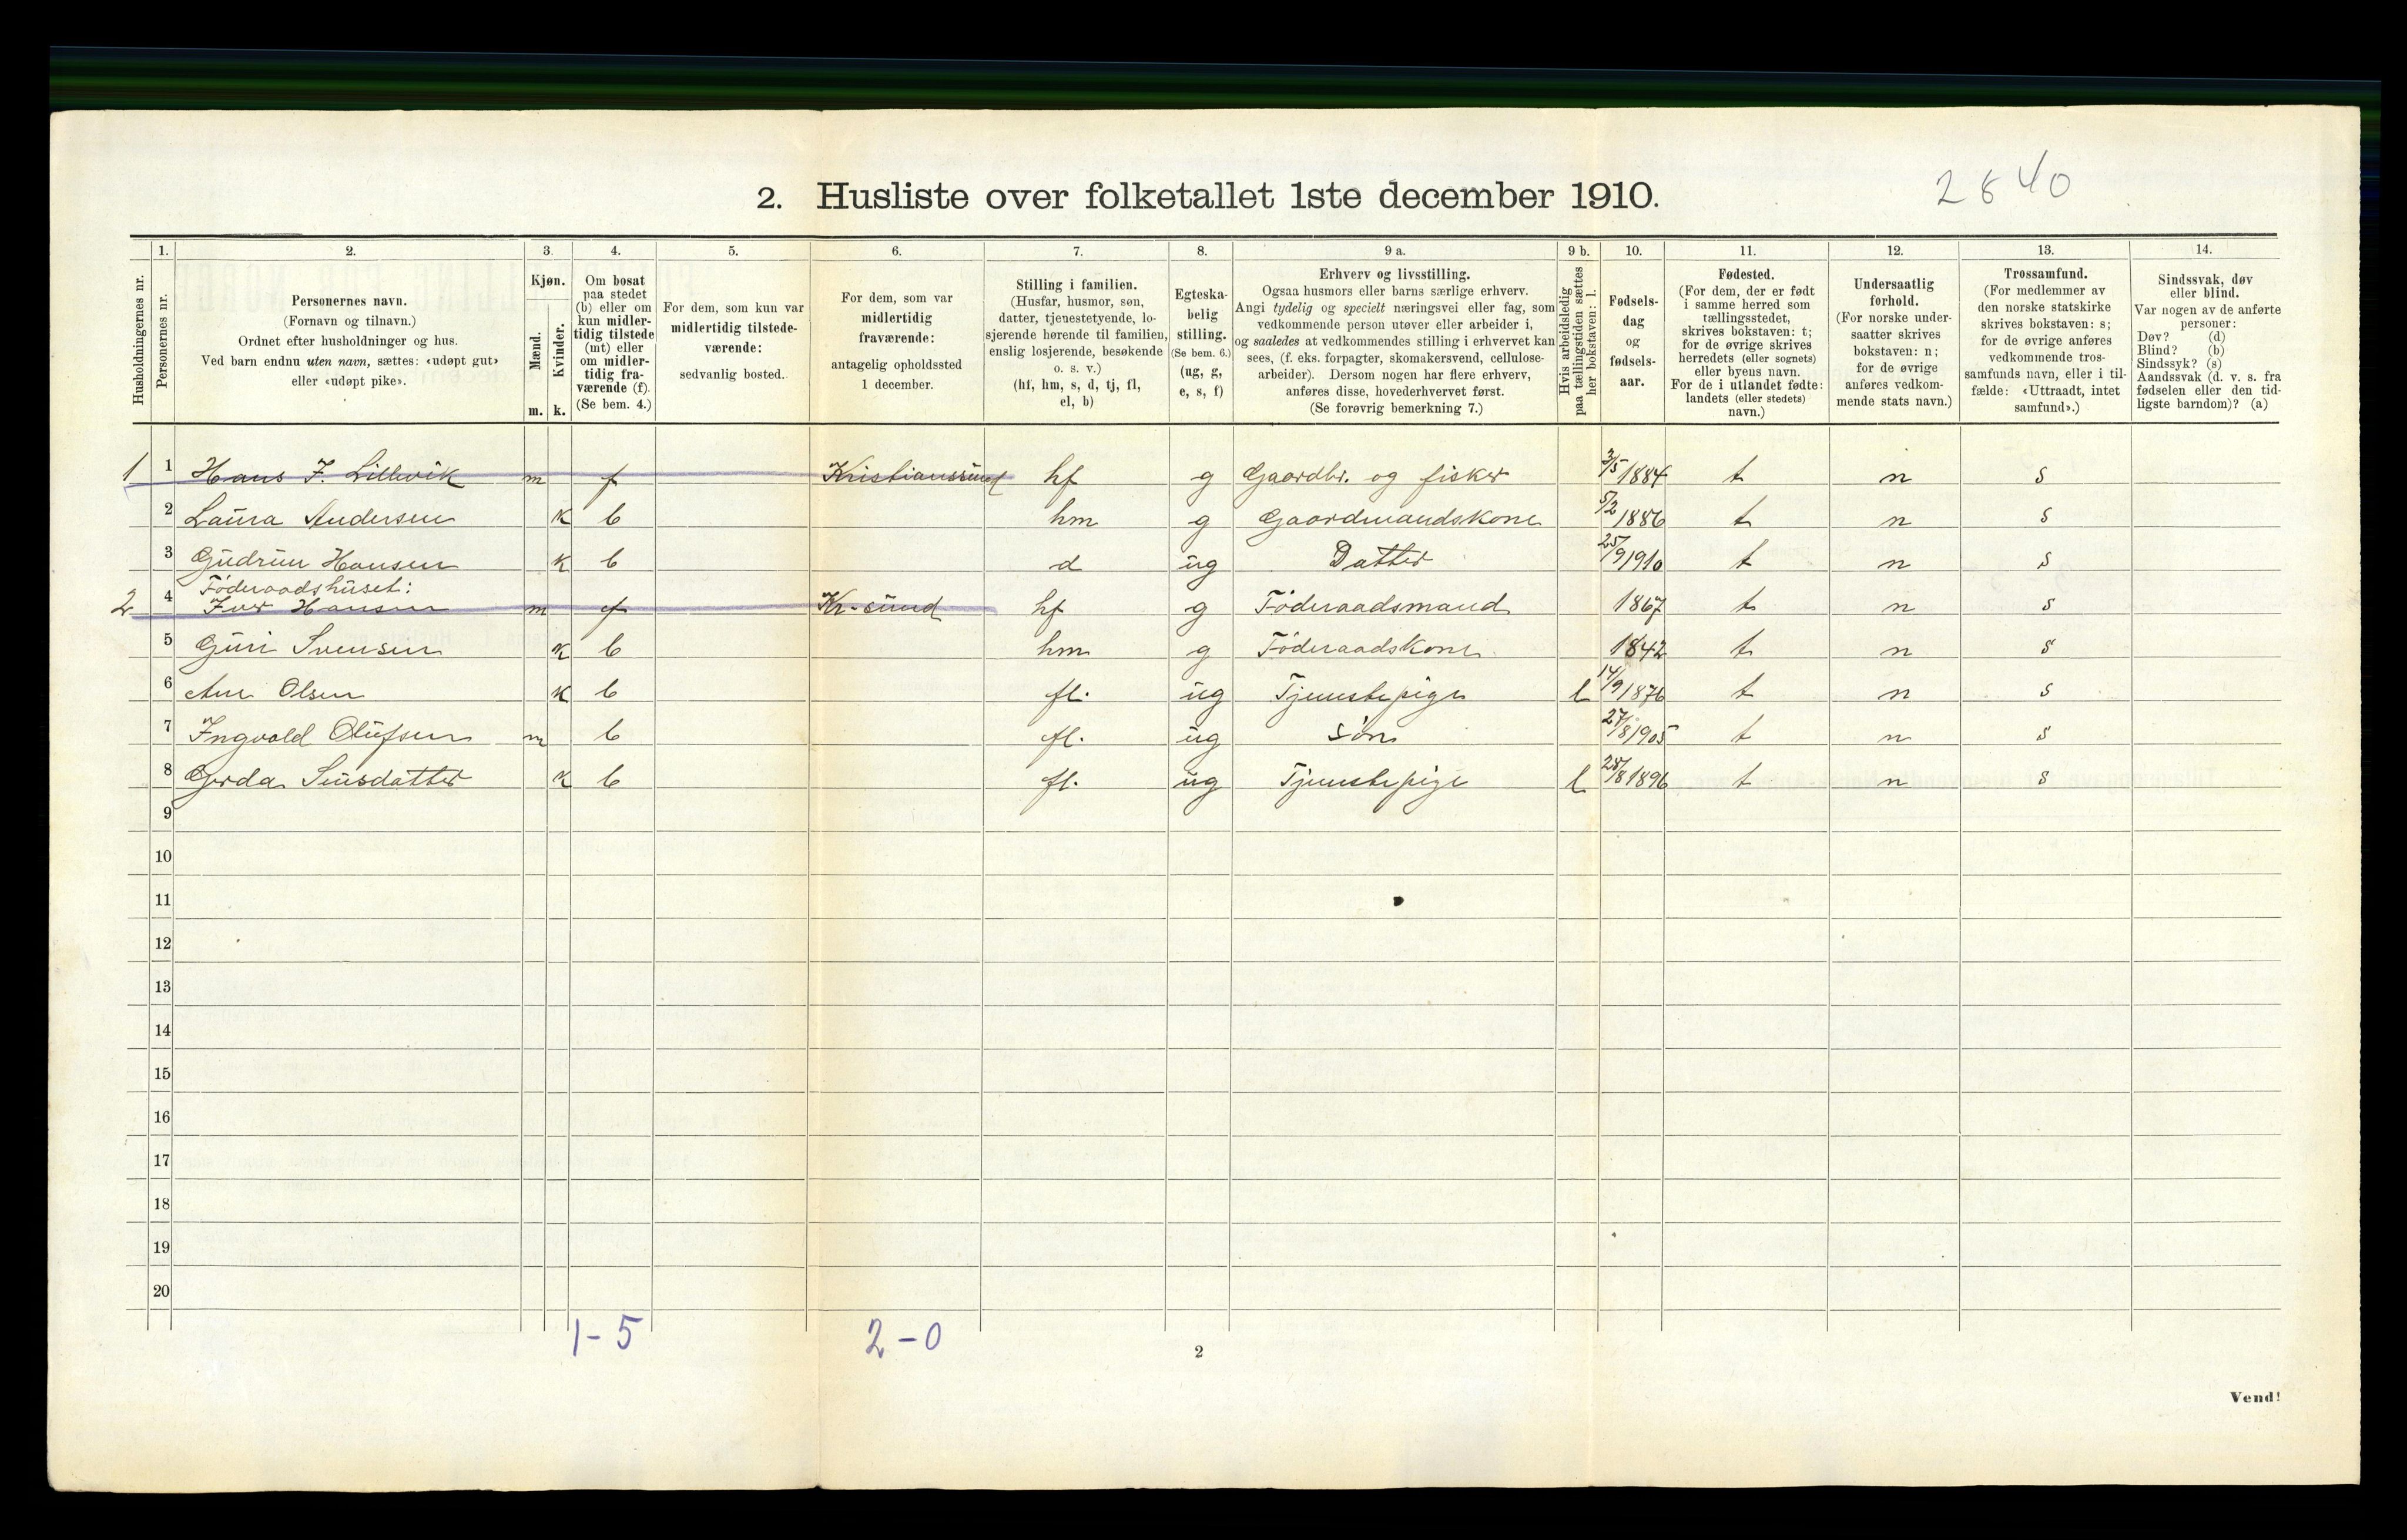 2840
2. Husliste over folketallet 1ste december 1910.
Husholdningernes nr.
1.
Personernes nr.
2.
Personernes navn.
(Fornavn og tilnavn.)
Ordnet efter husholdninger og hus.
Ved barn endnu uten navn, sættes: «udøpt gut»
eller «udøpt pike».
3.
Kjøn.
Mænd.
Kvinder.
m. k.
4.
Om bosat
paa stedet
(b) eller om
kun midler-
tidig tilstede
(mt) eller
om midler-
tidig fra-
værende (f).
(Se bem. 4.)
5.
For dem, som kun var
midlertidig tilstede-
værende:
sedvanlig bosted.
6.
For dem, som var
midlertidig
fraværende:
antagelig opholdssted
1 december.
7.
Stilling i familien.
(Husfar, husmor, søn,
datter, tjenestetyende, lo-
sjerende hørende til familien,
enslig losjerende, besøkende
o. s. v.)
(hf, hm, s, d, tj, fl,
el, b)
8.
Egteska-
belig
stilling.
(Se bem. 6.)
(ug, g,
e, s, f)
9 a.
Erhverv og livsstilling.
Ogsaa husmors eller barns særlige erhverv.
Angi tydelig og specielt næringsvei eller fag, som
vedkommende person utøver eller arbeider i,
og saaledes at vedkommendes stilling i erhvervet kan
sees, (f. eks. forpagter, skomakersvend, cellulose-
arbeider). Dersom nogen har flere erhverv,
anføres disse, hovederhvervet først.
(Se forøvrig bemerkning 7.)
9 b.
Hvis arbeidsledig
paa tællingstiden sættes
her bokstaven: l.
10.
Fødsels-
dag
og
fødsels-
aar.
11.
Fødested.
(For dem, der er født
i samme herred som
tællingsstedet,
skrives bokstaven: t;
for de øvrige skrives
herredets (eller sognets)
eller byens navn.
For de i utlandet fødte:
landets (eller stedets)
navn.)
12.
Undersaatlig
forhold.
(For norske under-
saatter skrives
bokstaven: n;
for de øvrige
anføres vedkom-
mende stats navn.)
13.
Trossamfund.
(For medlemmer av
den norske statskirke
skrives bokstaven: s;
for de øvrige anføres
vedkommende tros-
samfunds navn, eller i til-
fælde: «Uttraadt, intet
samfund».)
14.
Sindssvak, døv
eller blind.
Var nogen av de anførte
personer:
Døv? (d)
Blind? (b)
Sindssyk? (s)
Aandssvak (d. v. s. fra
fødselen eller den tid-
ligste barndom)? (a)
1 1 Hans J. Lillevik m f Kristianssund hf g Gaardbr. og fisker 3/5 1884 t n s
2 Laura Andersen k b hm g Gaardmandskone 5/2 1886 t n s
3 Gudrun Hansen k b d ug Datter 25/9 1910 t n s
Föderaadshuset:
2 4 Iver Hansen m f Kr-sund hf g Föderaadsmand 1867 t n s
5 Guri Svensen k b hm g Föderaadskone 1842 t n s
6 Ane Olsen k b fl. ug Tjenestepige l 14/9 1876 t n s
7 Ingvald Olufsen m b fl. ug Sön 27/8 1905 t n s
8 Gerda k b fl. ug Tjenestepige l 28/8 1896 t n s
9
10
11
12
13
14
15
16
17
18
19
20
1-5 2-0
2
Vend!